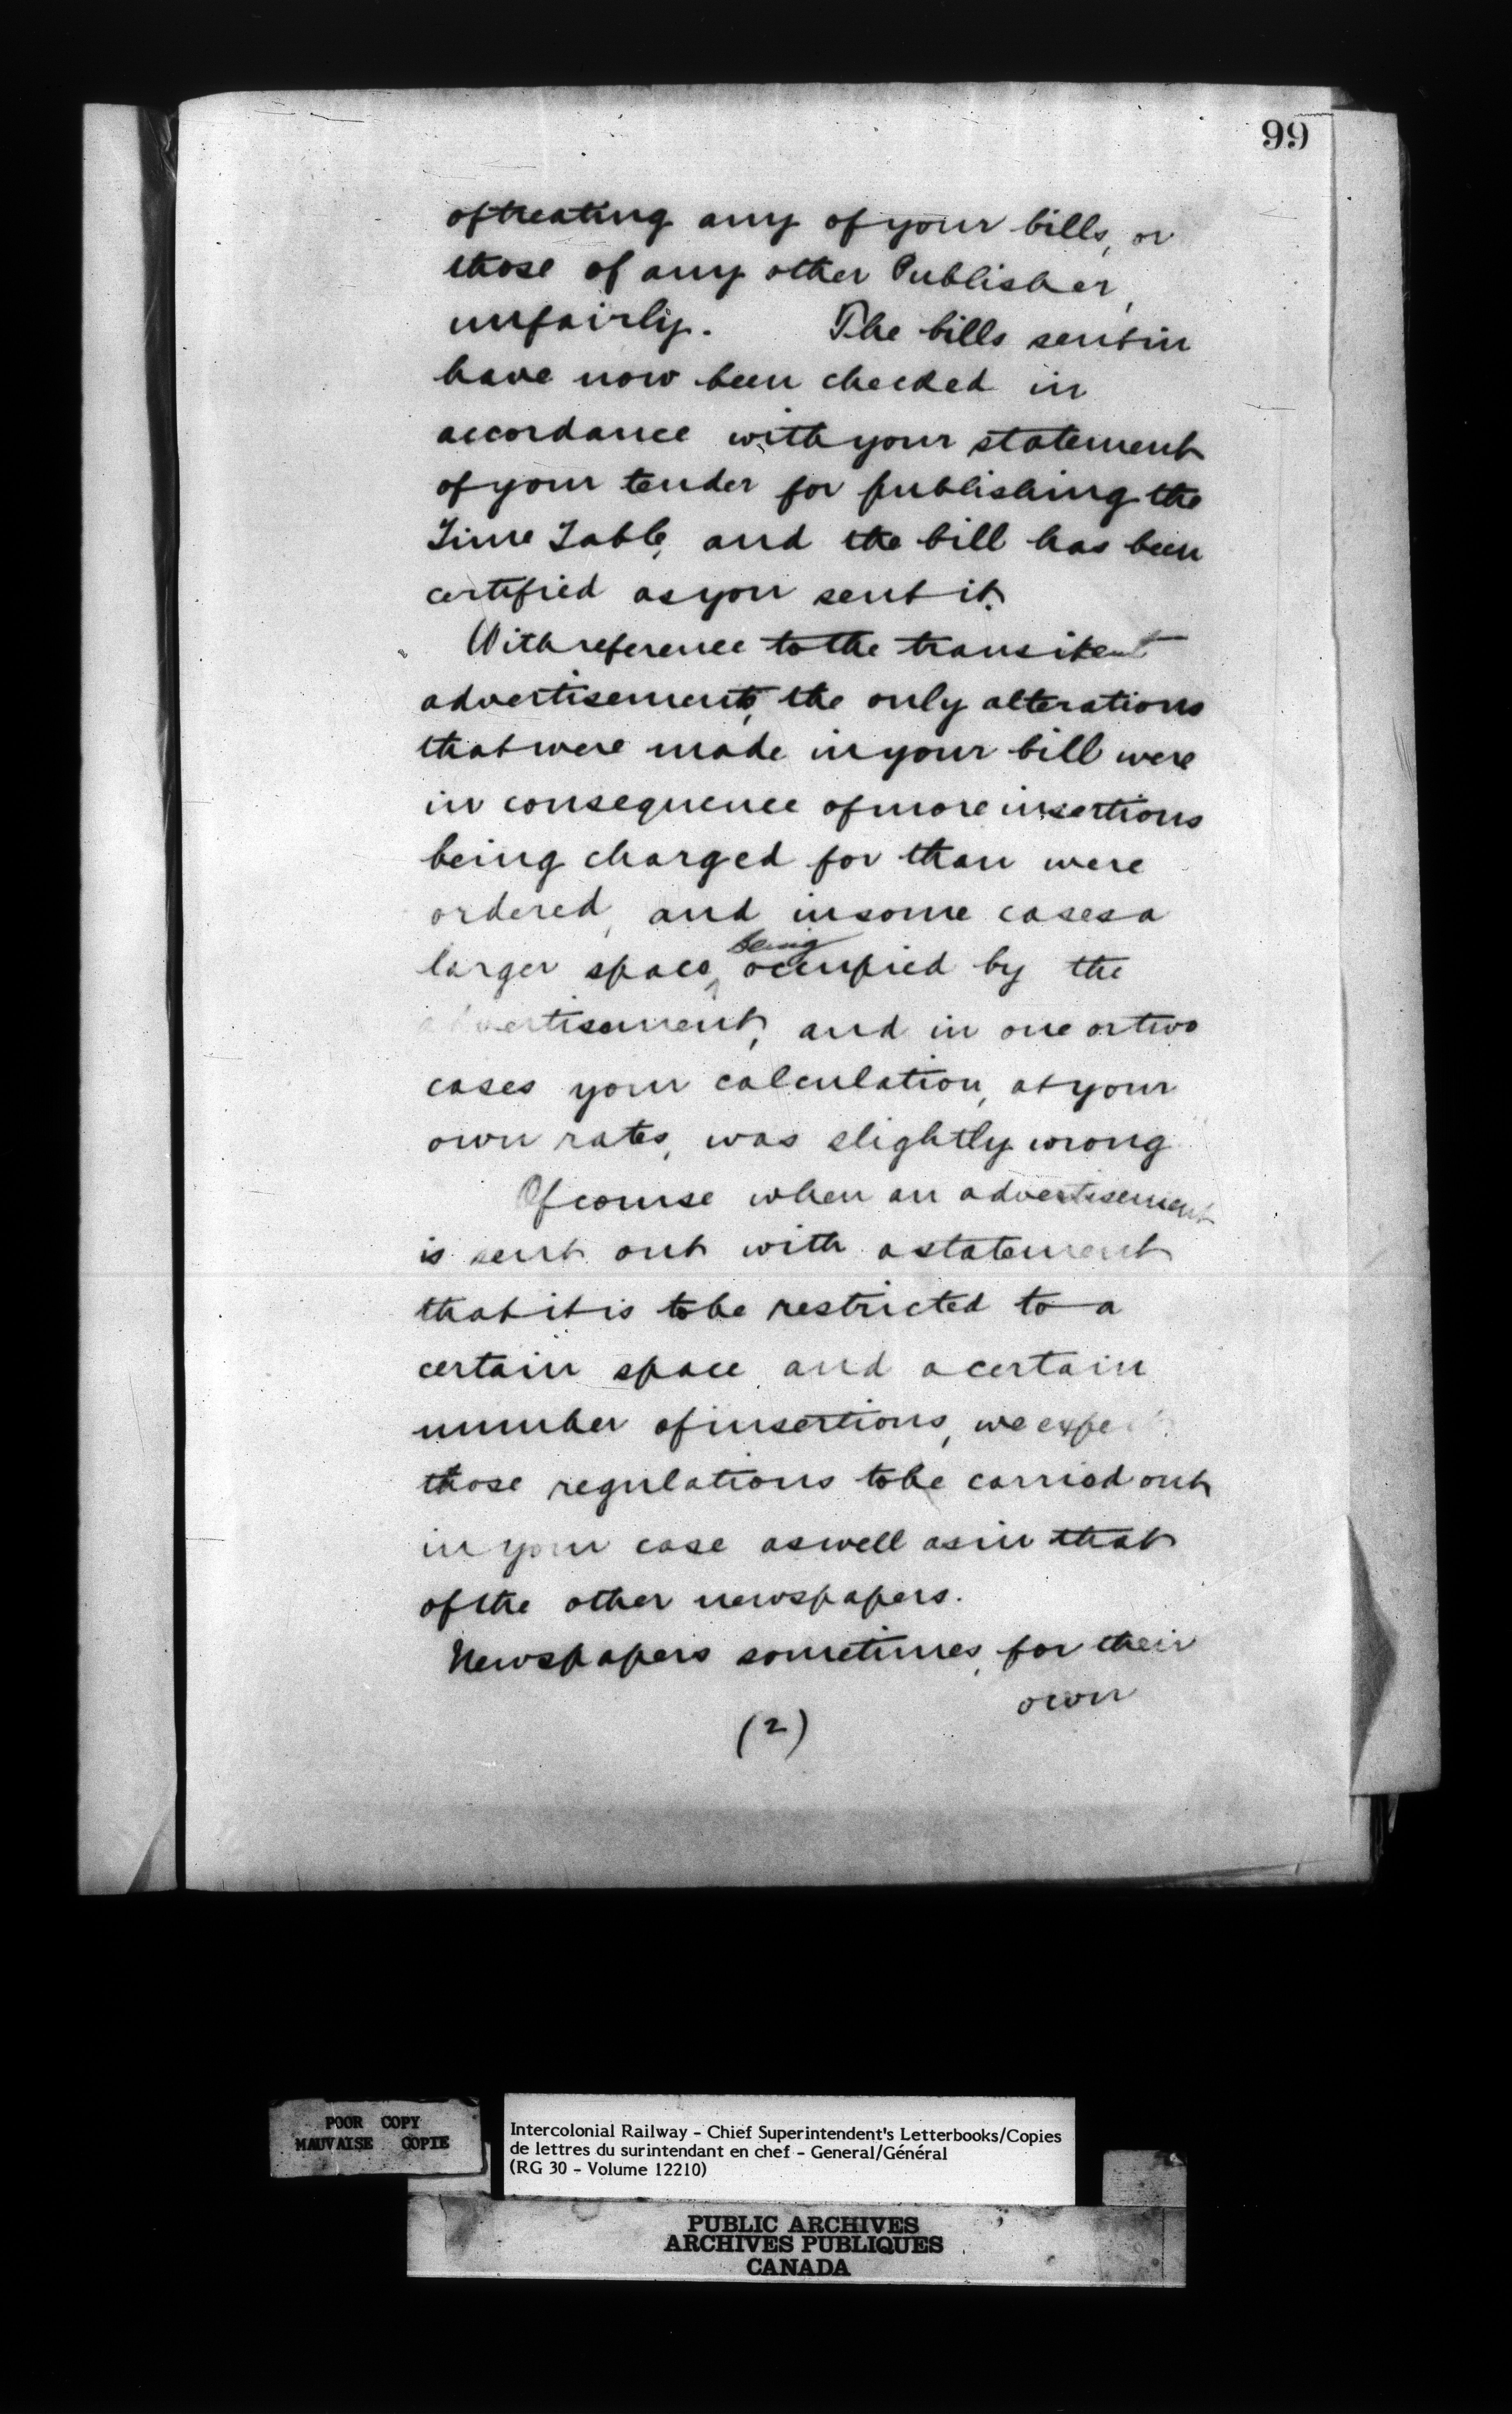 99
of treating any of your bills, or
those of any other Publisher,
unfairly. The bills sent in
have now been checked in
accordance with your statement
of your tender for publishing the
Time Table, and the bill has been
certified as you sent it.
With reference to the transient
advertisements, the only alterations
that were made in your bill were
in consequence of more insertions
being charged for than were
ordered, and in some cases a
larger space, being occupied by the
advertisement, and in one or two
cases your calculation, at your
own rates, was slightly wrong
Of course when an advertisement
is sent out with a statement
that it is to be restricted to a
certain space and a certain
number of insertions, we expect
those regulations to be carried out
in your case as well as in that
of the other newspapers.
Newspapers sometimes, for their
own
(2)
POOR COPY
MAUVAISE COPIE
Intercolonial Railway - Chief Superintendent's Letterbooks/Copies
de lettres du surintendant en chef - General/Général
(RG 30 - Volume 12210)
PUBLIC ARCHIVES
ARCHIVES PUBLIQUES
CANADA